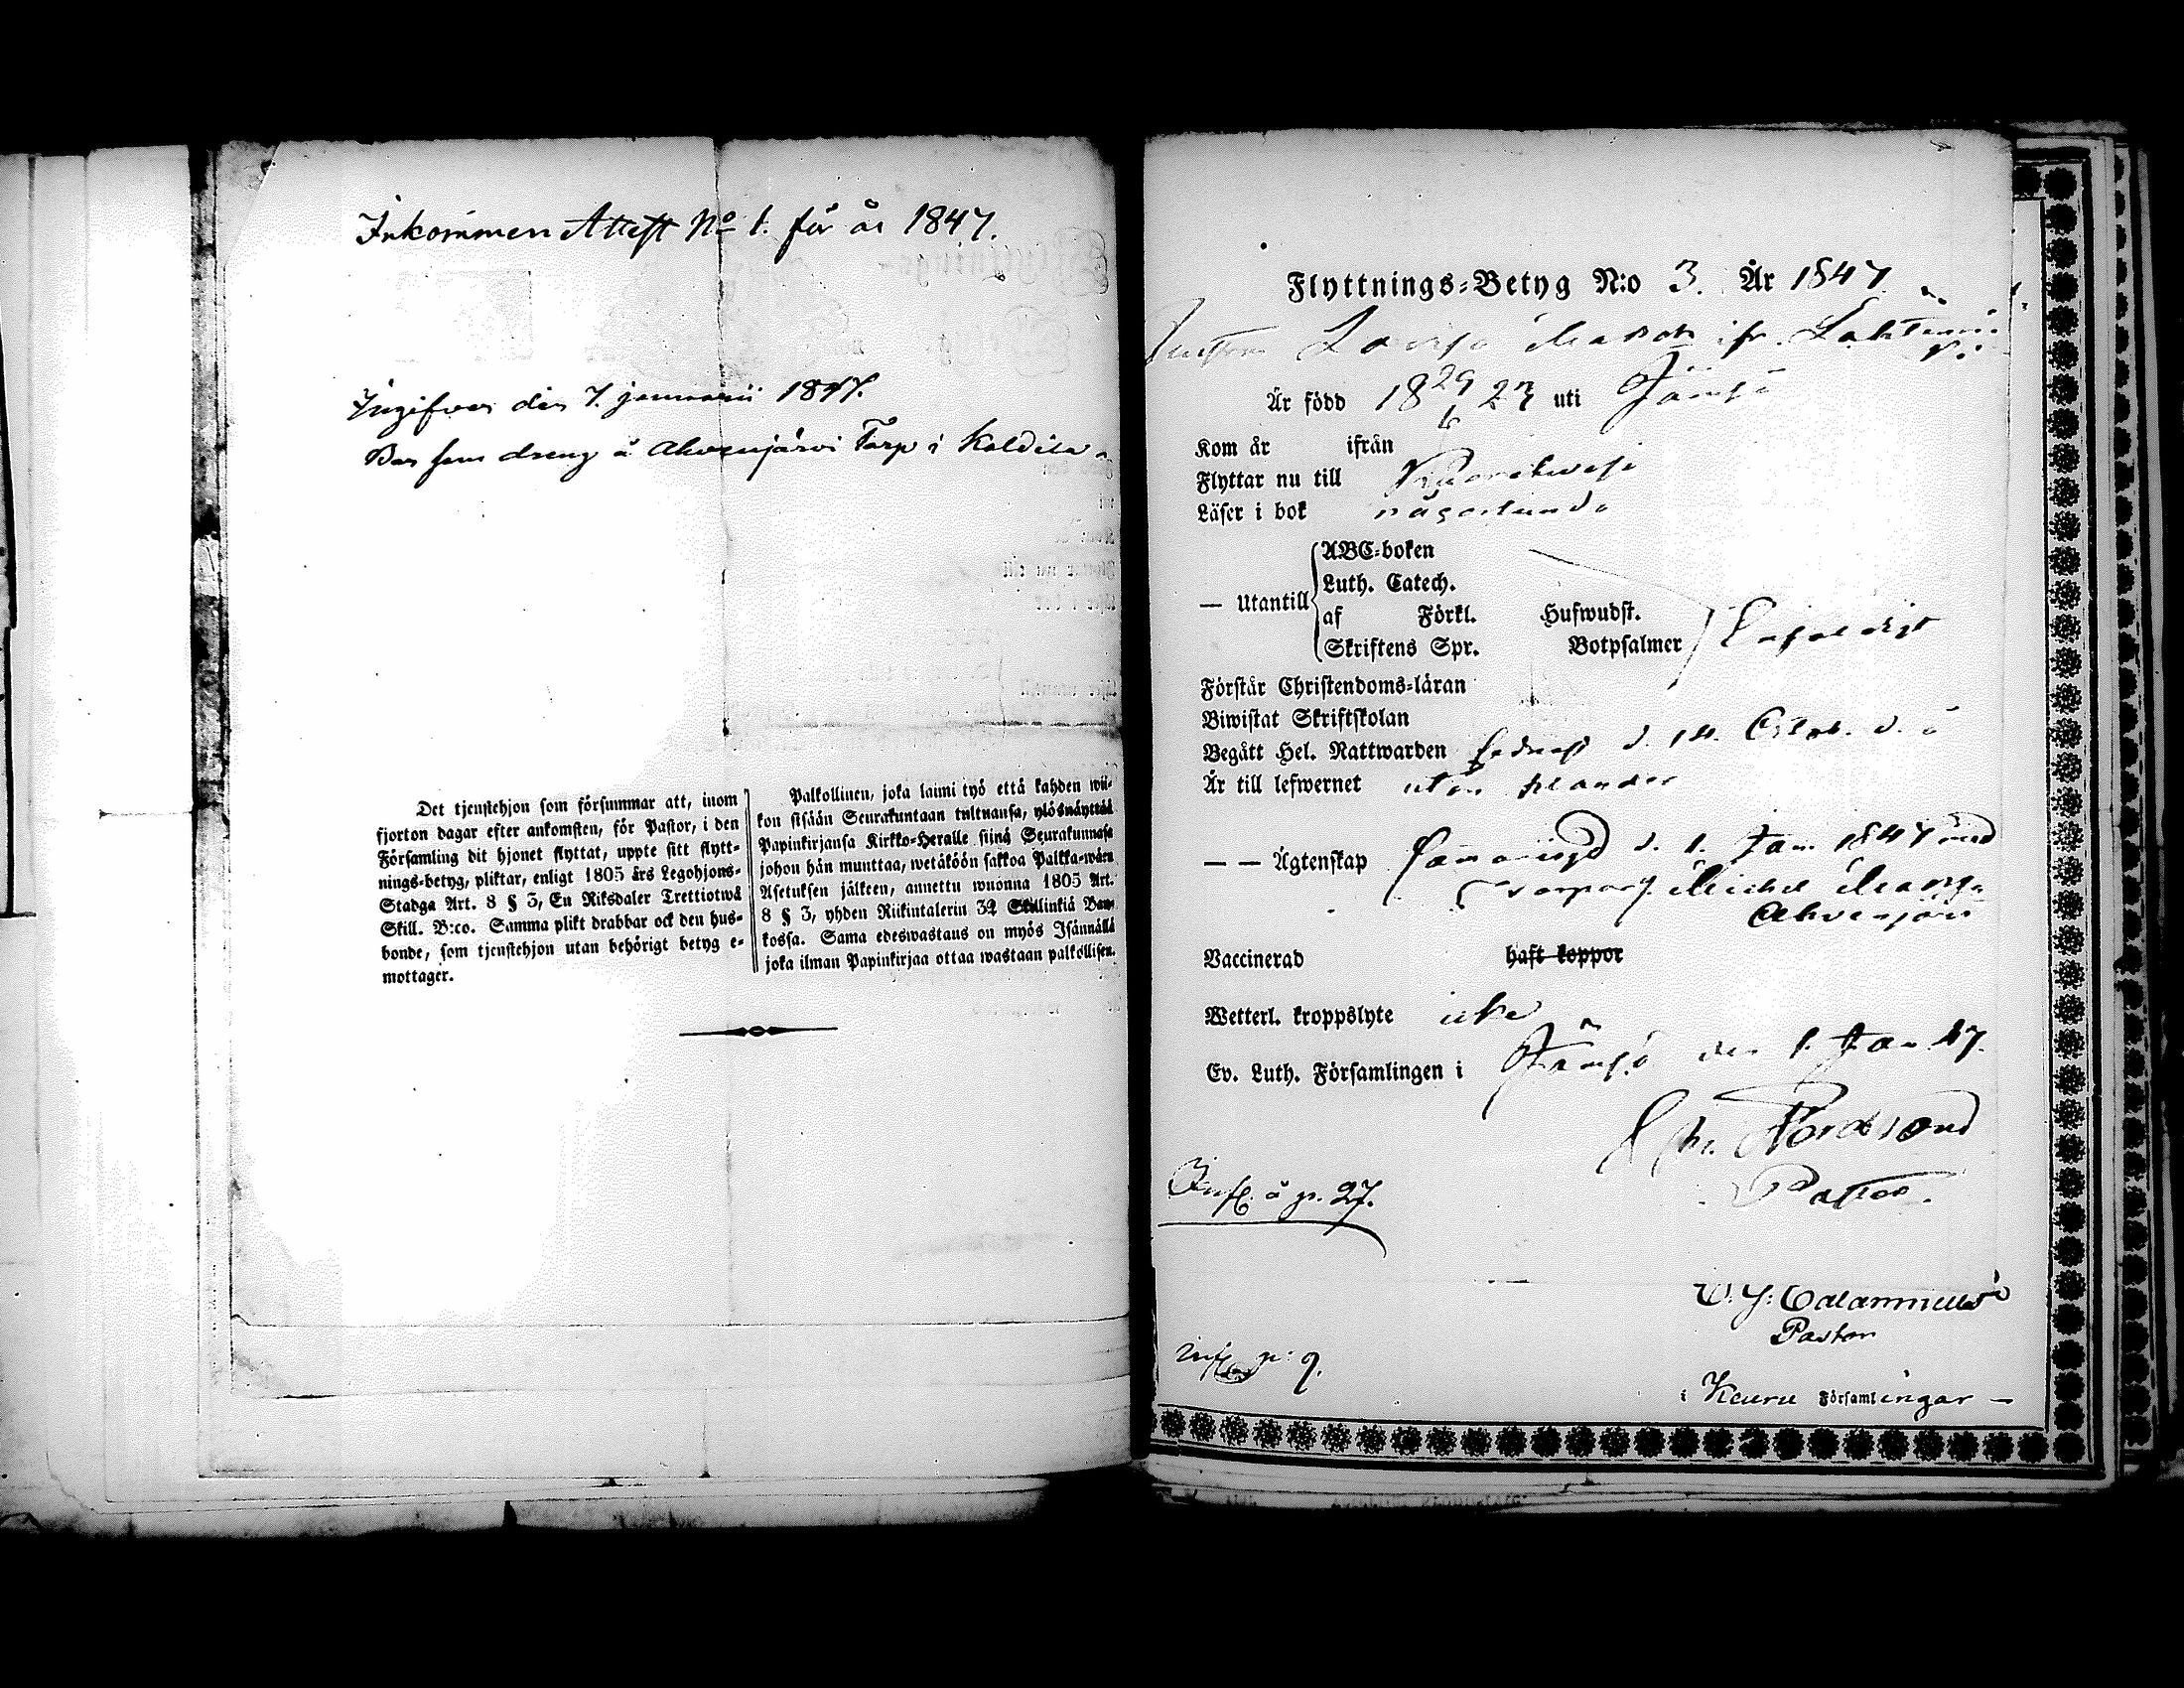 Inkommen Attest No 1. för år 1847.
Ingifven den 7. januarii 1847.
Bor som dreng å Ahvenjärvi Torp i
Det tjenstehjon som försummar att, inom
fjorton dagar efter ankomsten, för Pastor, i den
Församling dit hjonet flyttat, uppte sitt flytt-
nings-betyg, pliktar, enligt 1805 års Legohjons-
Stadga Art. 8 § 3, En Riksdaler Trettiotwå
Skill. B:co. Samma plikt drabbar ock den hus-
bonde, som tjenstehjon utan behörigt betyg e-
mottager.
Palkollinen, joka laimi työ että kahden wii-
kon sisään Seurakuntaan tultuansa, ylösnäyttää
Papinkirjansa Kirkko-Heralle siinä Seurakunnasa
johon hän muuttaa, wetäköön sakkoa Palkka-wäen
Asetuksen jälkeen, annettu wuonna 1805 Art.
8 § 3, yhden Riikintalerin 32 Skillinkiä Ban-
kossa. Sama edeswastaus on myös Isännällä
joka ilman Papinkirjaa ottaa wastaan palkollisen.
Flyttnings-Betyg N:o 3. År 1847
Lovisa ifr.
Är född 18 29/6 23 uti Jämsä
Kom år ifrån
Flyttar nu till Kuorehvesi
Läser i bok någorlunda
ABC-boken
Luth. Catech.
— Utantill af Förkl. Hufwudst.
Skriftens Spr. Botpsalmer Enfaldigt
Förstår Christendoms-läran
Biwistat Skriftskolan
Begått Hel. Nattwarden sednast d. 14. Octob. d. å
Är till lefwernet utan klander
— — Ägtenskap sammanvigd d. 1. Jan. 1847 med
Michel
Ahvenjärvi
Vaccinerad haft koppor
Wetterl. kroppslyte icke
Ev. Luth. Församlingen i Jämsä den 1. Jan 47.
Nordlund
Pastor.
Insk. å p. 27.
Calamnius
Pastor
insk p: 9.
i Keuru Församlingar —